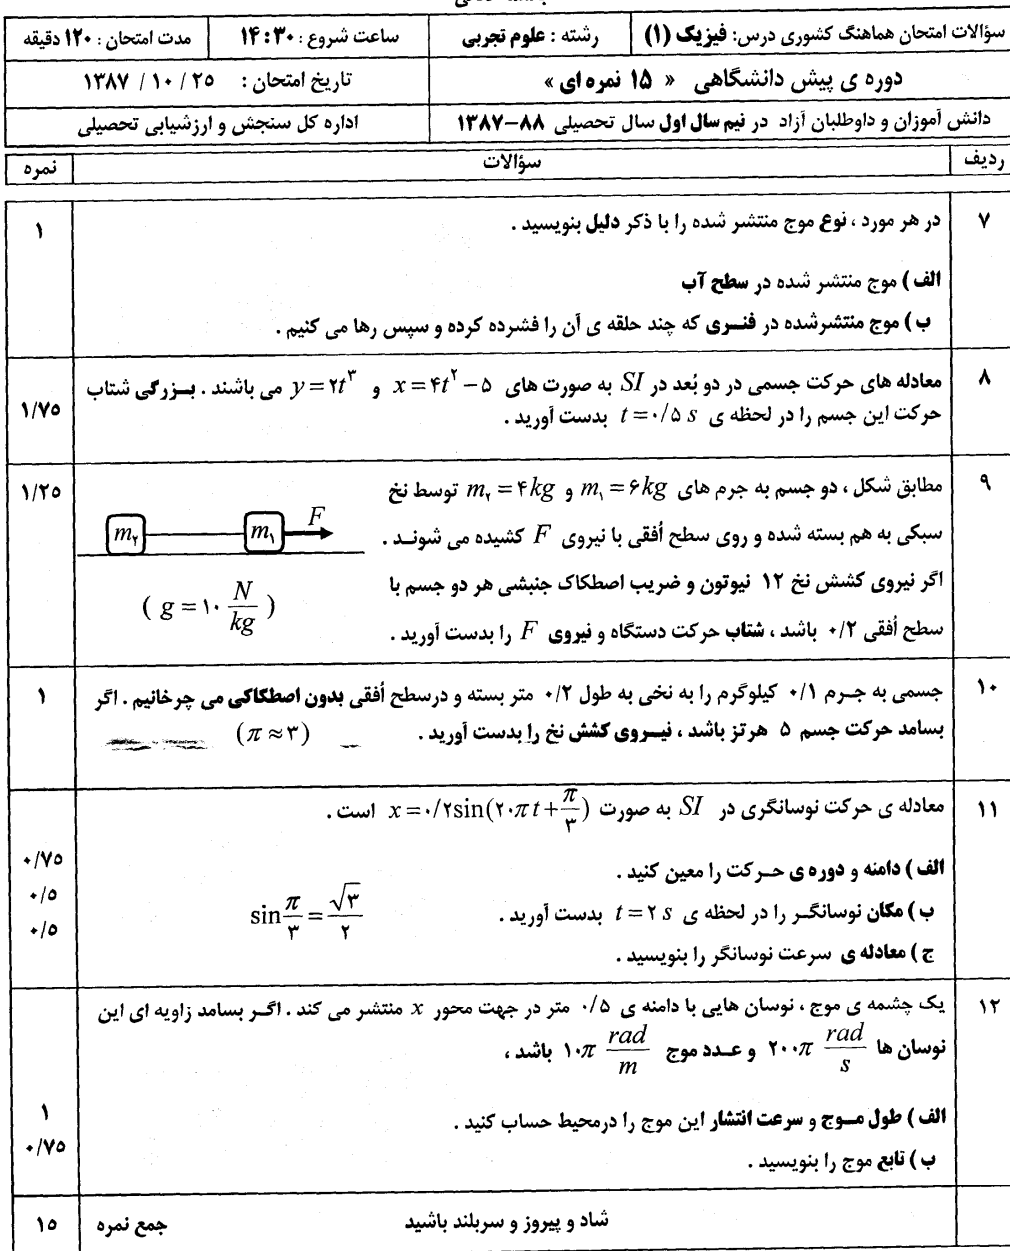 سؤالات امتحان هماهنگ کشوری درس: فیزیک (۱) رشته : علوم تجربی ساعت شروع : ۱۴:۳۰ مدت امتحان : ۱۲۰ دقیقه
دوره ی پیش دانشگاهی « ۱۵ نمره ای » تاریخ امتحان : ۲۵ / ۱۰ / ۱۳۸۷
دانش آموزان و داوطلبان آزاد در نیم سال اول سال تحصیلی ۸۸–۱۳۸۷ اداره کل سنجش و ارزشیابی تحصیلی
ردیف سؤالات نمره
۷ در هر مورد ، نوع موج منتشر شده را با ذکر دلیل بنویسید . ۱
الف ) موج منتشر شده در سطح آب
ب ) موج منتشرشده در فنـری که چند حلقه ی آن را فشرده کرده و سپس رها می کنیم .
۸ معادله های حرکت جسمی در دو بُعد در SI به صورت های x = ۴t^۲ − ۵ و y = ۲t^۳ می باشند . بـزرگی شتاب
حرکت این جسم را در لحظه ی t = ۰/۵ s بدست آورید . ۱/۷۵
۹ مطابق شکل ، دو جسم به جرم های m_۱ = ۶ kg و m_۲ = ۴ kg توسط نخ ۱/۲۵
سبکی به هم بسته شده و روی سطح اُفقی با نیروی F کشیده می شونـد .
m_۲ m_۱ F
اگر نیروی کشش نخ ۱۲ نیوتون و ضریب اصطکاک جنبشی هر دو جسم با
( g = ۱۰ N/kg )
سطح اُفقی ۰/۲ باشد ، شتاب حرکت دستگاه و نیروی F را بدست آورید .
۱۰ جسمی به جـرم ۰/۱ کیلوگرم را به نخی به طول ۰/۲ متر بسته و درسطح اُفقی بدون اصطکاکی می چرخانیم . اگر ۱
بسامد حرکت جسم ۵ هرتز باشد ، نیـروی کشش نخ را بدست آورید . (π ≈ ۳)
۱۱ معادله ی حرکت نوسانگری در SI به صورت x = ۰/۲sin(۲۰πt + π/۳) است .
الف ) دامنه و دوره ی حـرکت را معین کنید . ۰/۷۵
ب ) مکان نوسانگـر را در لحظه ی t = ۲ s بدست آورید . sin π/۳ = √۳/۲ ۰/۵
ج ) معادله ی سرعت نوسانگر را بنویسید . ۰/۵
۱۲ یک چشمه ی موج ، نوسان هایی با دامنه ی ۰/۵ متر در جهت محور x منتشر می کند . اگـر بسامد زاویه ای این
نوسان ها ۲۰۰π rad/s و عـدد موج ۱۰π rad/m باشد ،
الف ) طول مـوج و سرعت انتشار این موج را درمحیط حساب کنید . ۱
ب ) تابع موج را بنویسید . ۰/۷۵
شاد و پیروز و سربلند باشید جمع نمره ۱۵